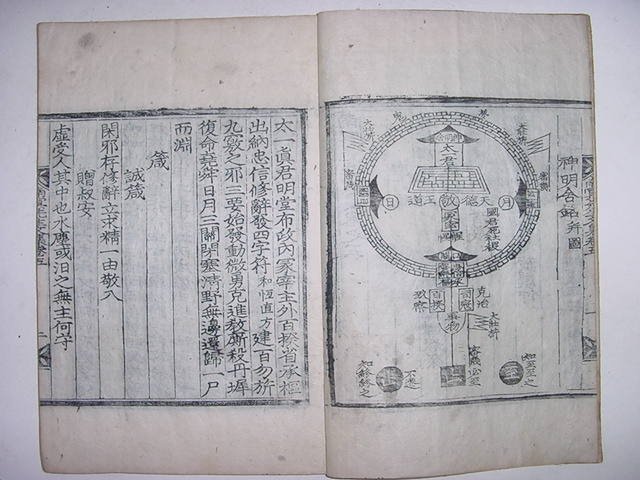 神明舍銘 并圖
太一君
敬
天德
王道
月
日
國君死社稷
大壯旂
克治
致察
百揆
大壯旂
事物
知至至之
必至
知終終之
太一眞君明堂布政內冢宰主外百揆省承樞
出納忠信修辭發四字符 和恒直方 建百勿旂
九竅之邪三要始發動微勇克進教廝殺丹墀
復命堯舜日月三關閉塞清野無邊還歸一尸
而淵
箴
誠箴
閑邪存修辭立求精一由敬入
贈叔安
虛堂人其中也水塵或汨之無主何守